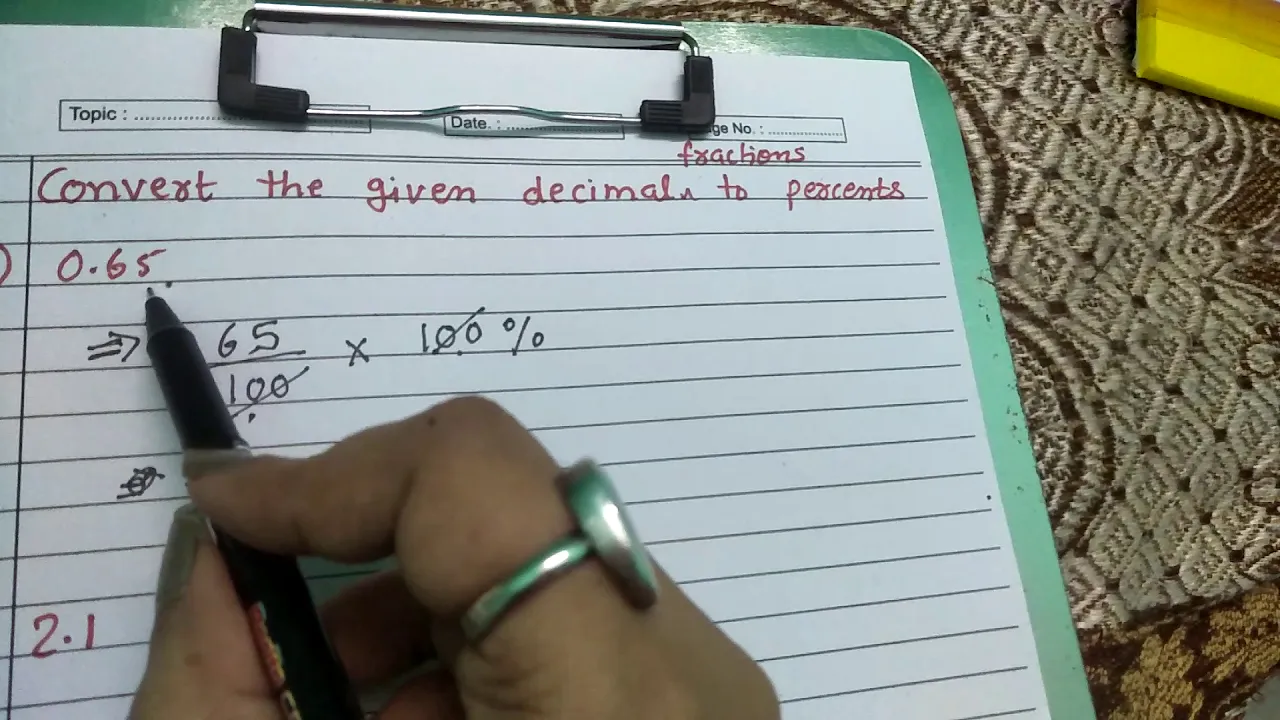 Topic : ........................
Date. : ........................
ge No. : ........................
fractions
Convert the given decimal to percents
) 0.65
⇒ 65 × 100 %
100
2.1